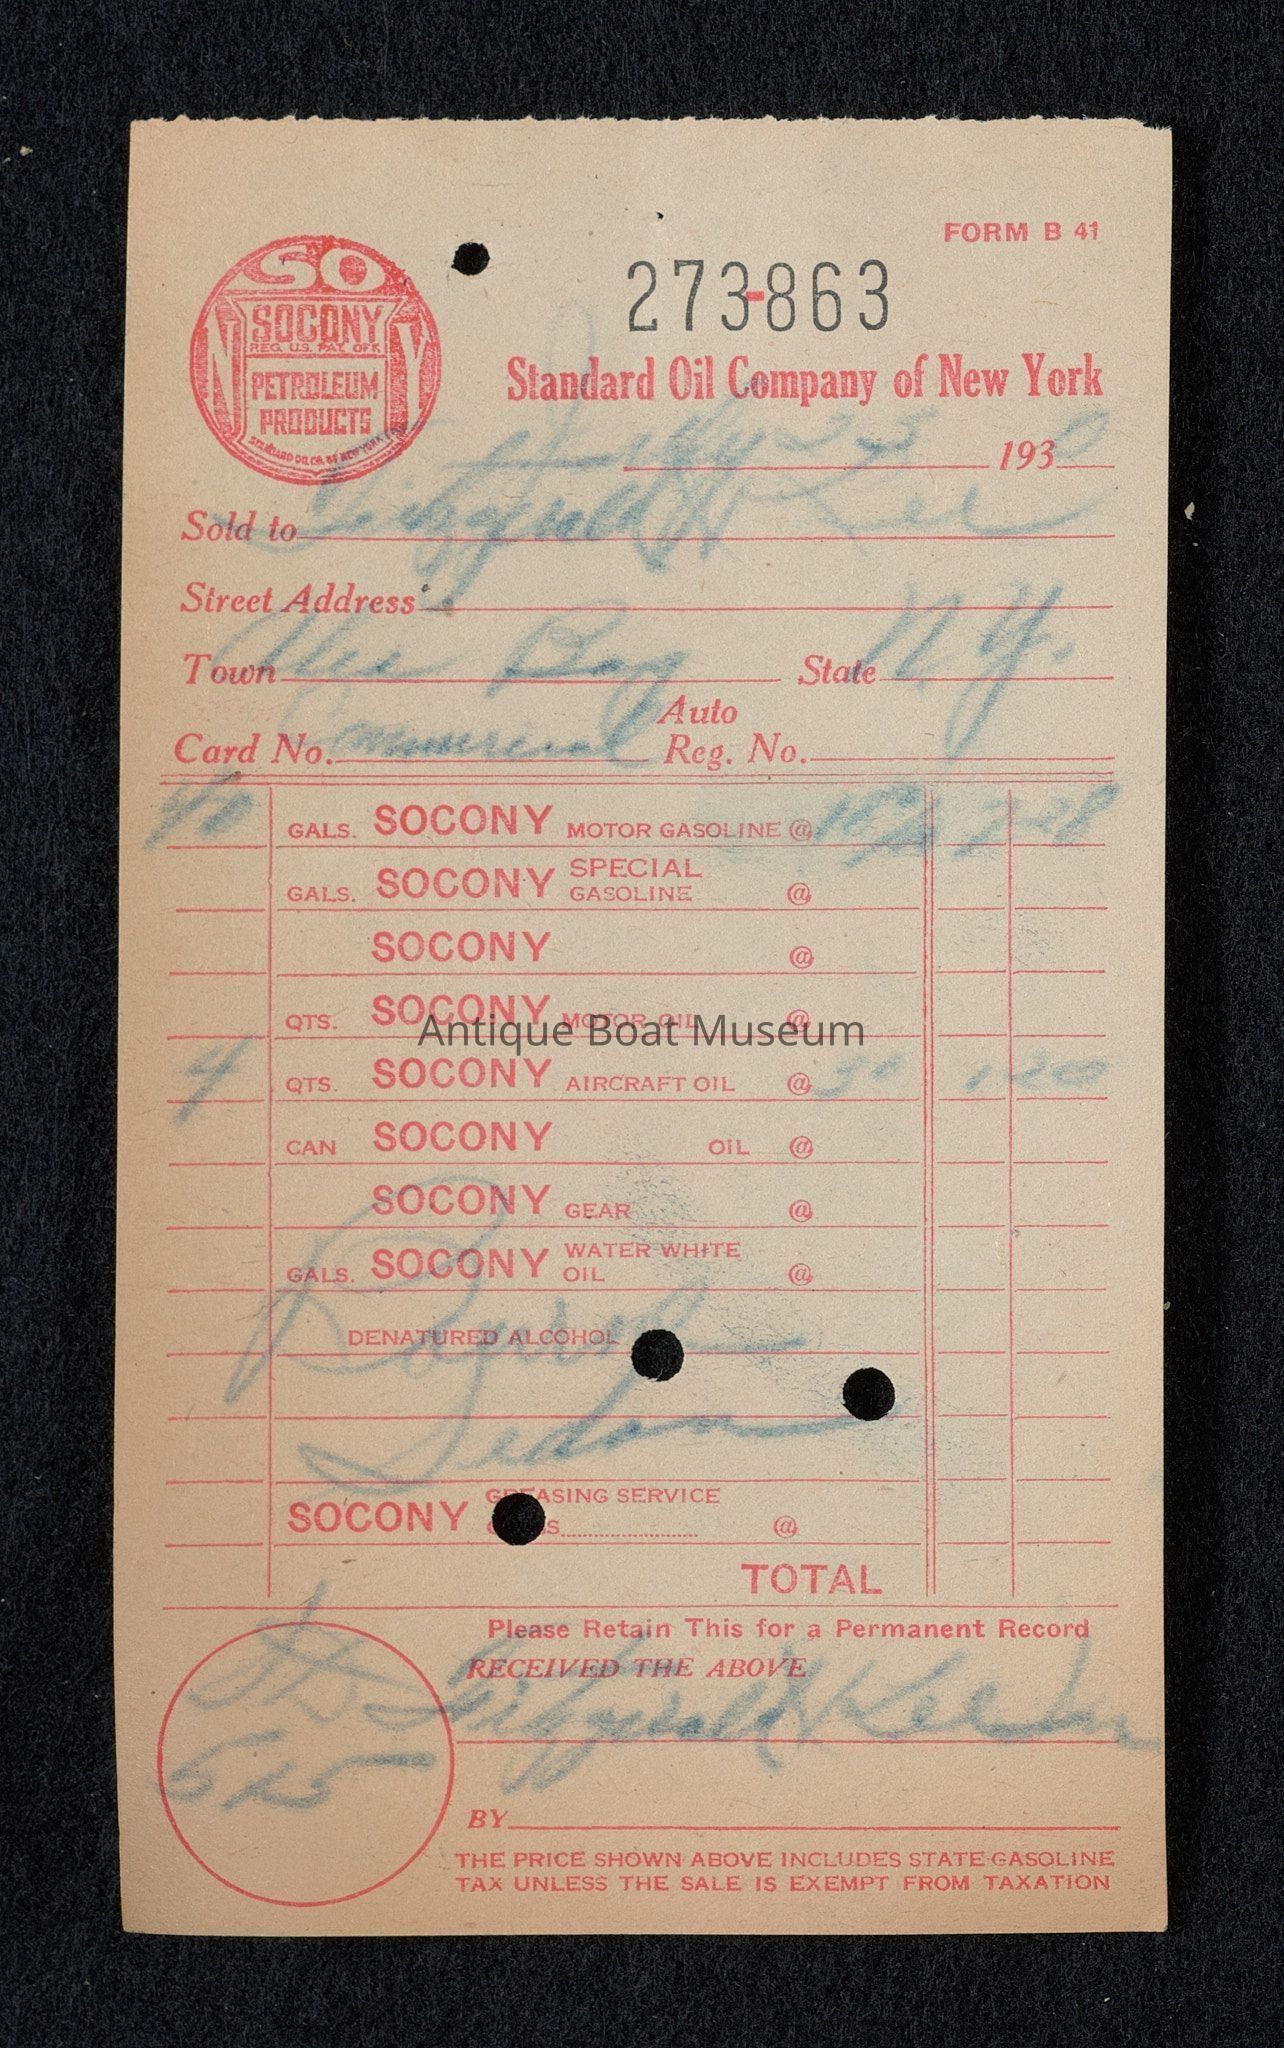 FORM B 41
SO
N Y
SOCONY
REG. U.S. PAT. OFF.
PETROLEUM
PRODUCTS
STANDARD OIL CO. OF NEW YORK
273-863
Standard Oil Company of New York
July 23 1930
Sold to Fitzgerald & Lee
Street Address
Town Alex Bay State N.Y.
Card No. Commercial Auto Reg. No.
40 GALS. SOCONY MOTOR GASOLINE @ 18 2/10 7 28
GALS. SOCONY SPECIAL GASOLINE @
SOCONY @
QTS. SOCONY MOTOR OIL @
Antique Boat Museum
4 QTS. SOCONY AIRCRAFT OIL @ 30 1 20
CAN SOCONY OIL @
SOCONY GEAR @
GALS. SOCONY WATER WHITE OIL @
DENATURED ALCOHOL
Sedan
SOCONY GREASING SERVICE
@
TOTAL
Please Retain This for a Permanent Record
RECEIVED THE ABOVE
Fitzgerald & Lee
525
BY
THE PRICE SHOWN ABOVE INCLUDES STATE GASOLINE
TAX UNLESS THE SALE IS EXEMPT FROM TAXATION